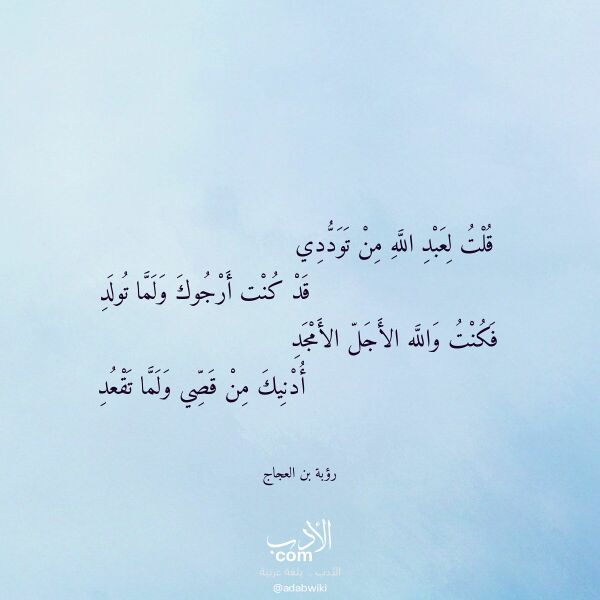 قُلْتُ لِعَبْدِ اللَّهِ مِنْ تَوَدُّدِي
قَدْ كُنْت أَرْجُوكَ وَلَمَّا تُولَدِ
فَكُنْتُ وَاللَّه الأَجَلّ الأَمْجَدِ
أُدْنِيكَ مِنْ قَصِّي وَلَمَّا تَقْعُدِ
رؤبة بن العجاج
الأدب
com
الأدب .. بلغة عربية
@adabwiki